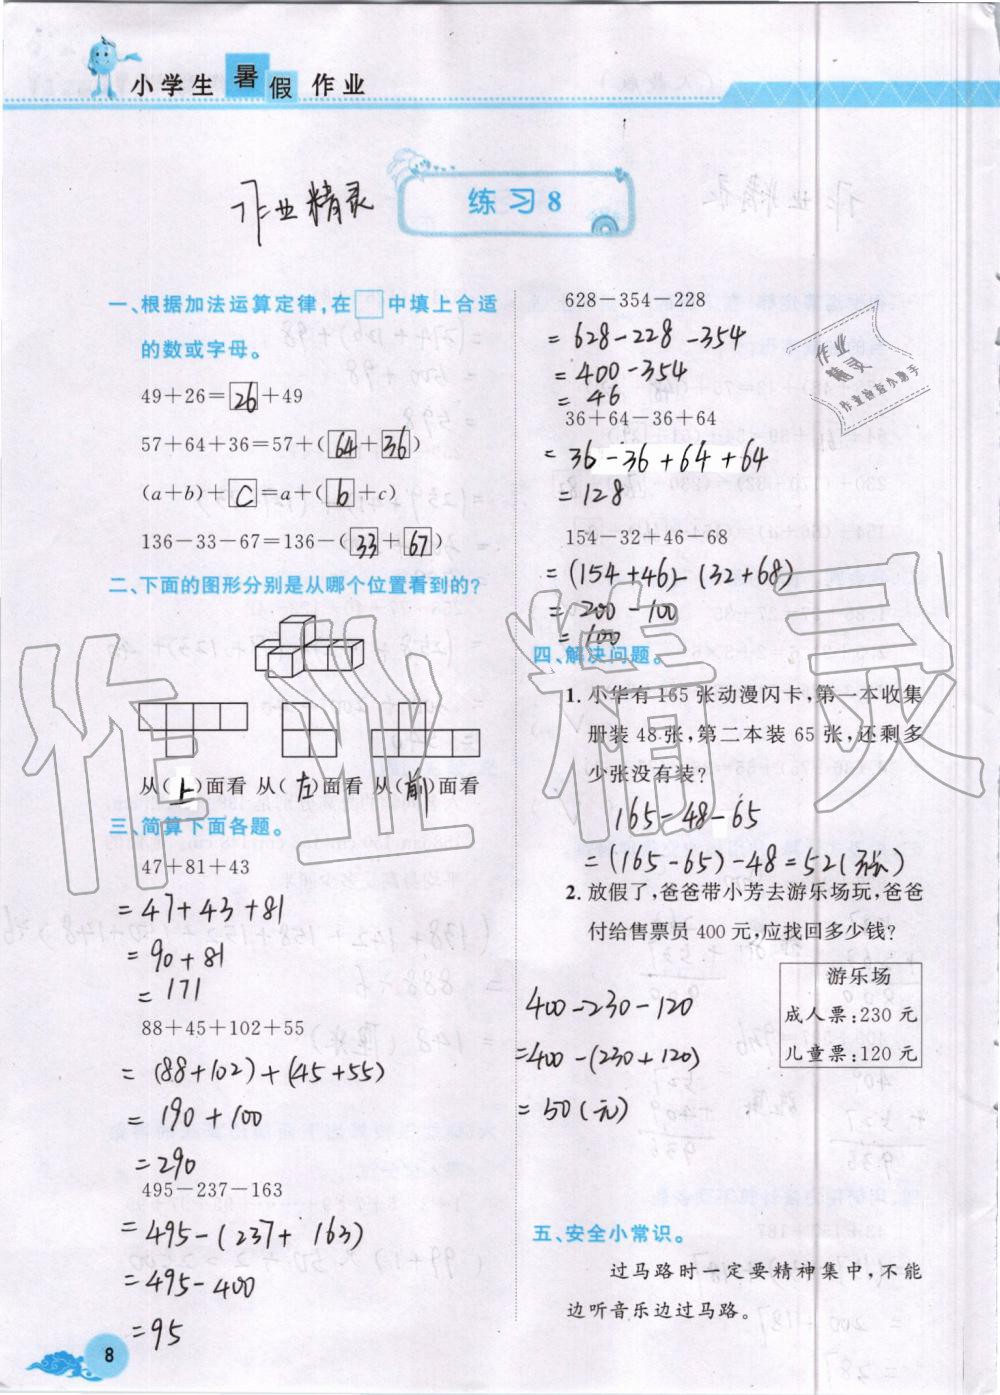 小学生暑假作业
练习8
作业精灵
一、根据加法运算定律,在□中填上合适
的数或字母。
49+26=26+49
57+64+36=57+(64+36)
(a+b)+c=a+(b+c)
136-33-67=136-(33+67)
二、下面的图形分别是从哪个位置看到的?
从(上)面看 从(左)面看 从(前)面看
三、简算下面各题。
47+81+43
=47+43+81
=90+81
=171
88+45+102+55
=(88+102)+(45+55)
=190+100
=290
495-237-163
=495-(237+163)
=495-400
=95
628-354-228
=628-228-354
=400-354
=46
36+64-36+64
=36-36+64+64
=128
154-32+46-68
=(154+46)-(32+68)
=200-100
=100
四、解决问题。
1.小华有165张动漫闪卡,第一本收集
册装48张,第二本装65张,还剩多
少张没有装?
165-48-65
=(165-65)-48=52(张)
2.放假了,爸爸带小芳去游乐场玩,爸爸
付给售票员400元,应找回多少钱?
游乐场
成人票:230元
儿童票:120元
400-230-120
=400-(230+120)
=50(元)
五、安全小常识。
过马路时一定要精神集中,不能
边听音乐边过马路。
8
作业
精灵
作业检查小助手
作业精灵